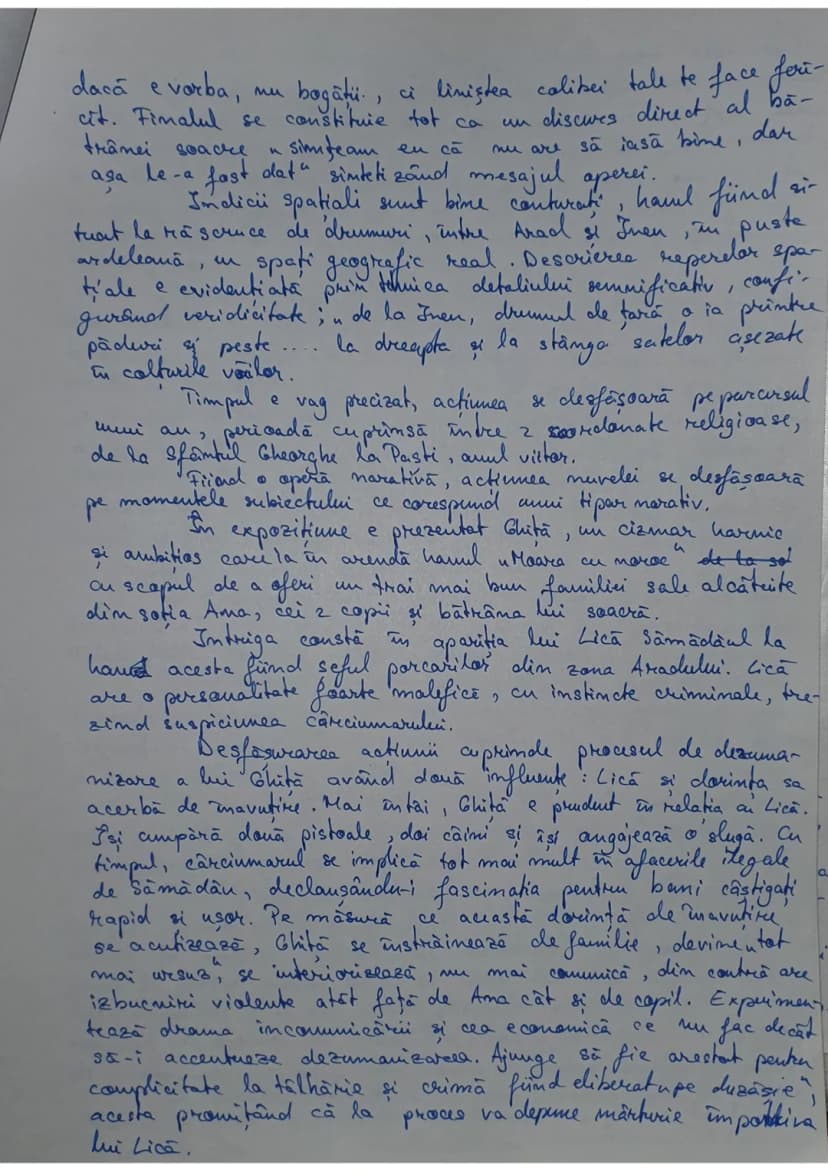 dacă e vorba, nu bogăția, ci liniștea colibei tale te face feri-
cit. Finalul se constituie tot ca un discurs direct al bă-
trânei soacre „simțeam eu că nu are să iasă bine, dar
așa le-a fost dat" sintetizând mesajul operei.
Indicii spațiali sunt bine conturați, hanul fiind si-
tuat la răscruce de drumuri, între Arad și Ineu, în pusta
ardeleană, un spați geografic real. Descrierea reperelor spa-
țiale e evidentiată prin tehnica detaliului semnificativ, confi-
gurând veridicitate; „de la Ineu, drumul de țară o ia printre
păduri și peste .... la dreapta și la stânga satelor așezate
în colțurile văilor.
Timpul e vag precizat, acțiunea se desfășoară pe parcursul
unui an, perioadă cuprinsă între 2 coordonate religioase,
de la Sfântul Gheorghe la Paști, anul viitor.
Fiind o operă narativă, acțiunea nuvelei se desfășoară
pe momentele subiectului ce corespund unui tipar narativ.
În expozițiune e prezentat Ghiță, un cizmar harnic
și ambițios care ia în arendă hanul „Moara cu noroc" de la so
cu scopul de a oferi un trai mai bun familiei sale alcătuite
din soția Ana, cei 2 copii și bătrâna lui soacră.
Intriga constă în apariția lui Lică Sămădăul la
han acesta fiind șeful porcarilor din zona Aradului. Lică
are o personalitate foarte malefică, cu instincte criminale, tre-
zind suspiciunea cârciumarului.
Desfășurarea acțiunii cuprinde procesul de dezuma-
nizare a lui Ghiță având două influențe: Lică și dorința sa
acerbă de înavuțire. Mai întâi, Ghiță e prudent în relația cu Lică.
Își cumpără două pistoale, doi câini și își angajează o slugă. Cu
timpul, cârciumarul se implică tot mai mult în afacerile ilegale
de Sămădău, declanșându-i fascinația pentru bani câștigați
rapid si ușor. Pe măsură ce această dorință de înavuțire
se acutizează, Ghiță se înstrăinează de familie, devine „tot
mai ursuz", se interiorizează, nu mai comunică, din contră are
izbucniri violente atât față de Ana cât și de copil. Experimen-
tează drama incomunicării și cea economică ce nu fac decât
să-i accentueze dezumanizarea. Ajunge să fie arestat pentru
complicitate la tâlhărie și crimă fiind eliberat „pe chezășie",
acesta promițând că la proces va depune mărturie împotriva
lui Lică.